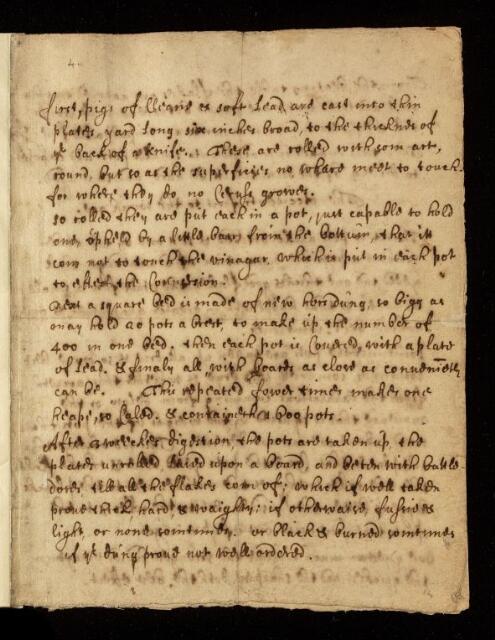 4
first, pigs of Cleane & soft Lead are cast into thin
plates, yard long, six inches broad, to the thicknes of
ye back of a knife. These are rolled with som art,
round, but so as the superficies no whare meet to touch
for where they do, no Ceruse growes.
so rolled they are put each in a pot, just capable to hold
one, upheld by a little barr from the bottum, that it
com not to touch the vinagar, which is put in each pot
to effect the Conversion.
Next a square bed is made of new hors dung, so bigg as
may hold 20 pots a brest, to make up the number of
400 in one bed. then each pot is Covered, with a plate
of Lead. & finaly all with boards as close as conveniently
can be. This repeated fower times makes one
heape, so Caled. & containeth 1600 pots.
After 3 weekes digestion, the pots are taken up the
plates unrolled laied upon a board, and beten with battle
dores till all the flakes com of: which if well taken
prove thick hard & waighty: if otherwaise, fusie &
light, or none somtimes. or black & burned somtimes
if ye dung prove not well ordered.